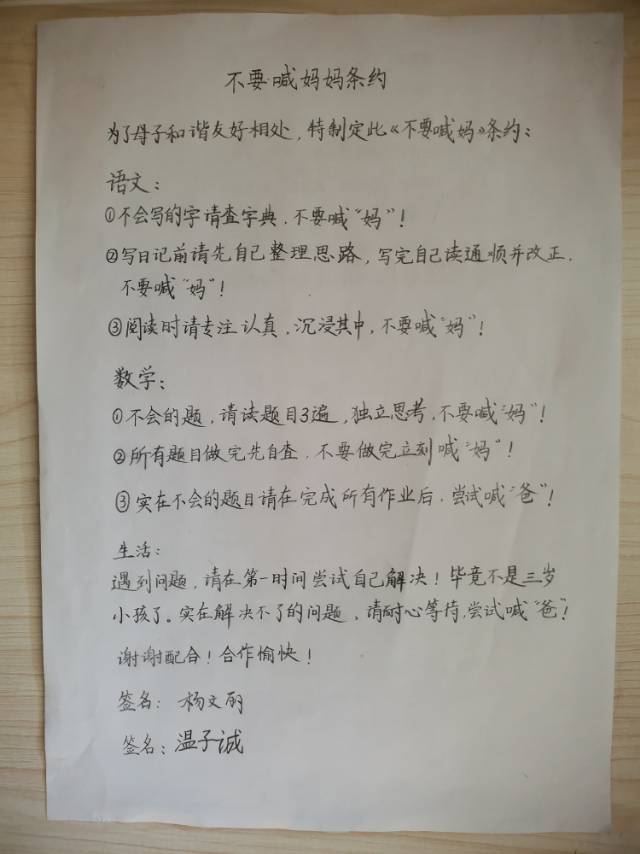 不要喊妈妈条约
为了母子和谐友好相处，特制定此《不要喊妈》条约：
语文：
①不会写的字请查字典，不要喊“妈”！
②写日记前请先自己整理思路，写完自己读通顺并改正，
不要喊“妈”！
③阅读时请专注认真，沉浸其中，不要喊“妈”！
数学：
①不会的题，请读题目3遍，独立思考，不要喊“妈”！
②所有题目做完先自查，不要做完立刻喊“妈”！
③实在不会的题目请在完成所有作业后，尝试喊“爸”！
生活：
遇到问题，请在第一时间尝试自己解决！毕竟不是三岁
小孩了。实在解决不了的问题，请耐心等待，尝试喊“爸”！
谢谢配合！合作愉快！
签名：杨文丽
签名：温子诚